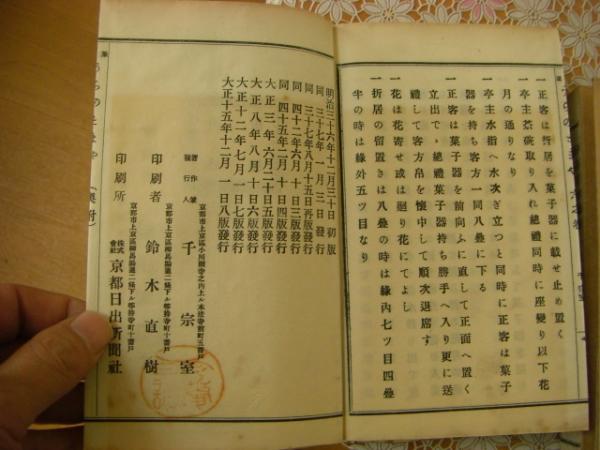 一正客は折居を菓子器に載せ止め置く
一亭主茶碗取り入れ總禮同時に座變り以下花
月の通りなり
一亭主水指へ水次ぎ立つと同時に正客は菓子
器を持ち客方一同八疊に下る
一正客は菓子器を前向ふに直して正面へ置く
立出で、總禮菓子器持ち勝手へ入り更に送
禮して客方帛を懐中して順次退席す
一花は花寄せ或は廻り花にてよし
一折居の留置きは八疊の時は緣内七ツ目四疊
半の時は緣外五ツ目なり
明治三十六年十二月三十日初版
同三十七年一月三日發行
同三十七年八月十五日再版發行
同四十二年六月十日三版發行
同四十五年二月十日四版發行
大正三年六月二十日五版發行
大正八年八月十日六版發行
大正十二年七月一日七版發行
大正十五年十二月一日八版發行
著作兼發行人
千宗室
印刷者
鈴木直樹
印刷所
株式會社
京都日出新聞社